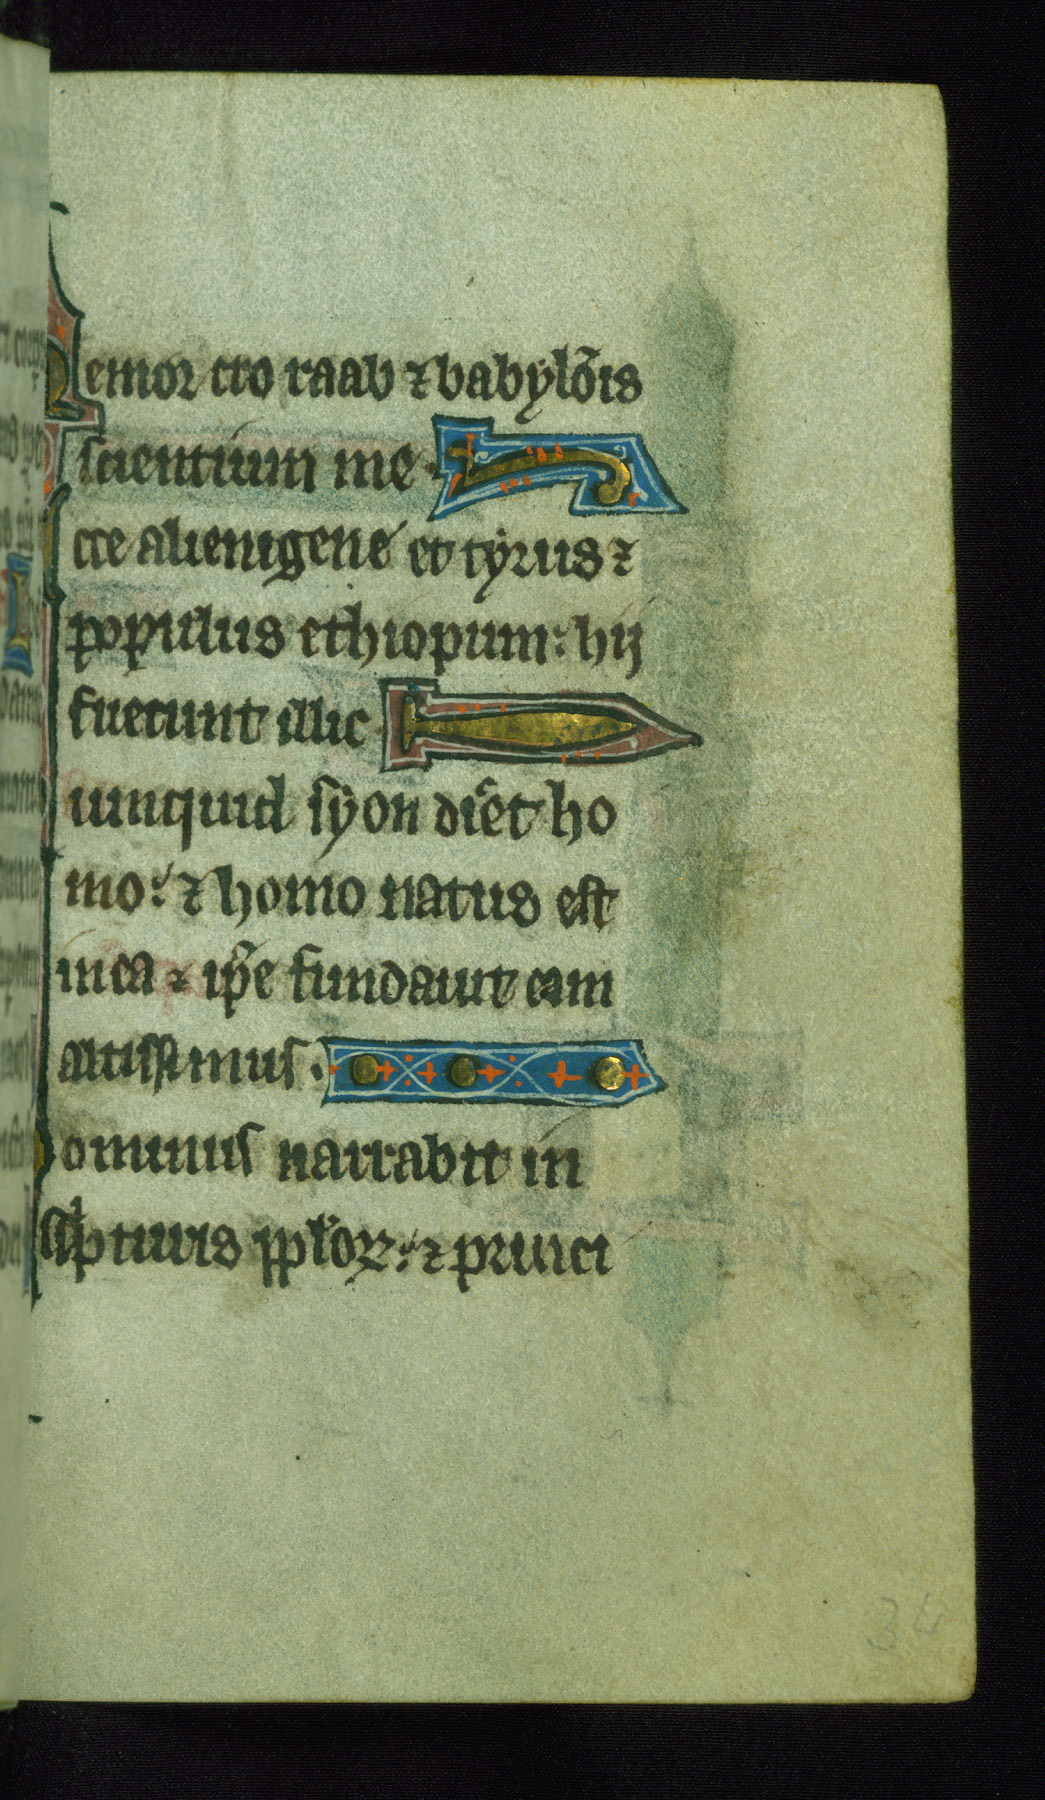 Memor ero raab ⁊ babylõis
scientium me
cce alienigene et tyrus ⁊
populus ethiopum: hij
fuerunt illic
unquid syon diĉet ho
mo: ⁊ homo natus est
in ea ⁊ ip̃e fundauit eam
altissimus.
ominus narrabit in
sc̀pturis pp̃lor̃: ⁊ princi
34